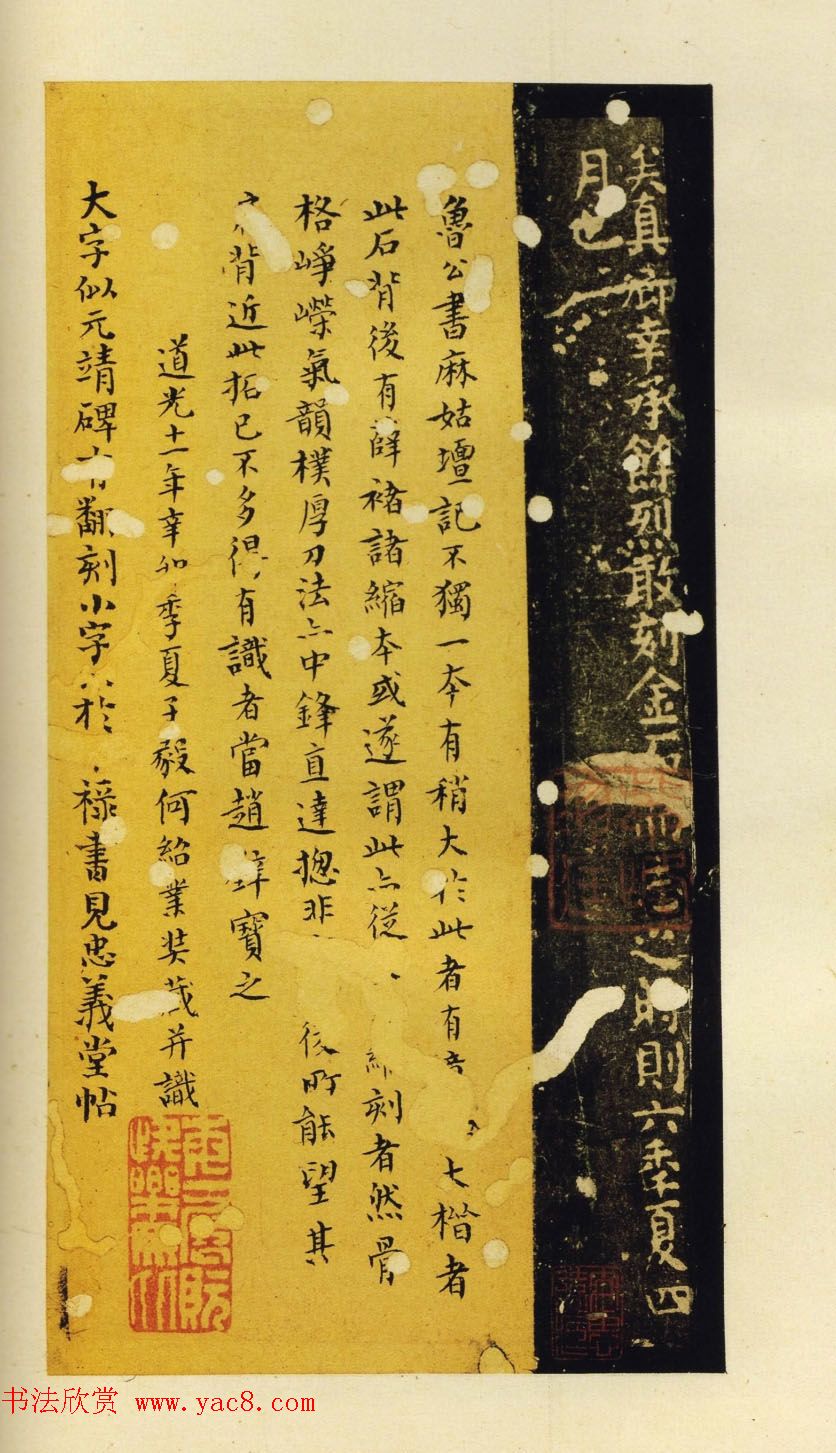 矣真卿幸承餘烈敢刻金石而志之時則六季夏四
月也
魯公書麻姑壇記不獨一本有稍大於此者有大楷者
此石背後有薛褚諸縮本或遂謂此亦從縮刻者然骨
格崢嶸氣韻樸厚刀法亦中鋒直達揔非後所能望其
背近此拓已不多得有識者當趙璧寶之
道光十一年辛卯季夏子毅何紹業裝成并識
大字似元靖碑有翻刻小字於祿書見忠義堂帖
书法欣赏 www.yac8.com